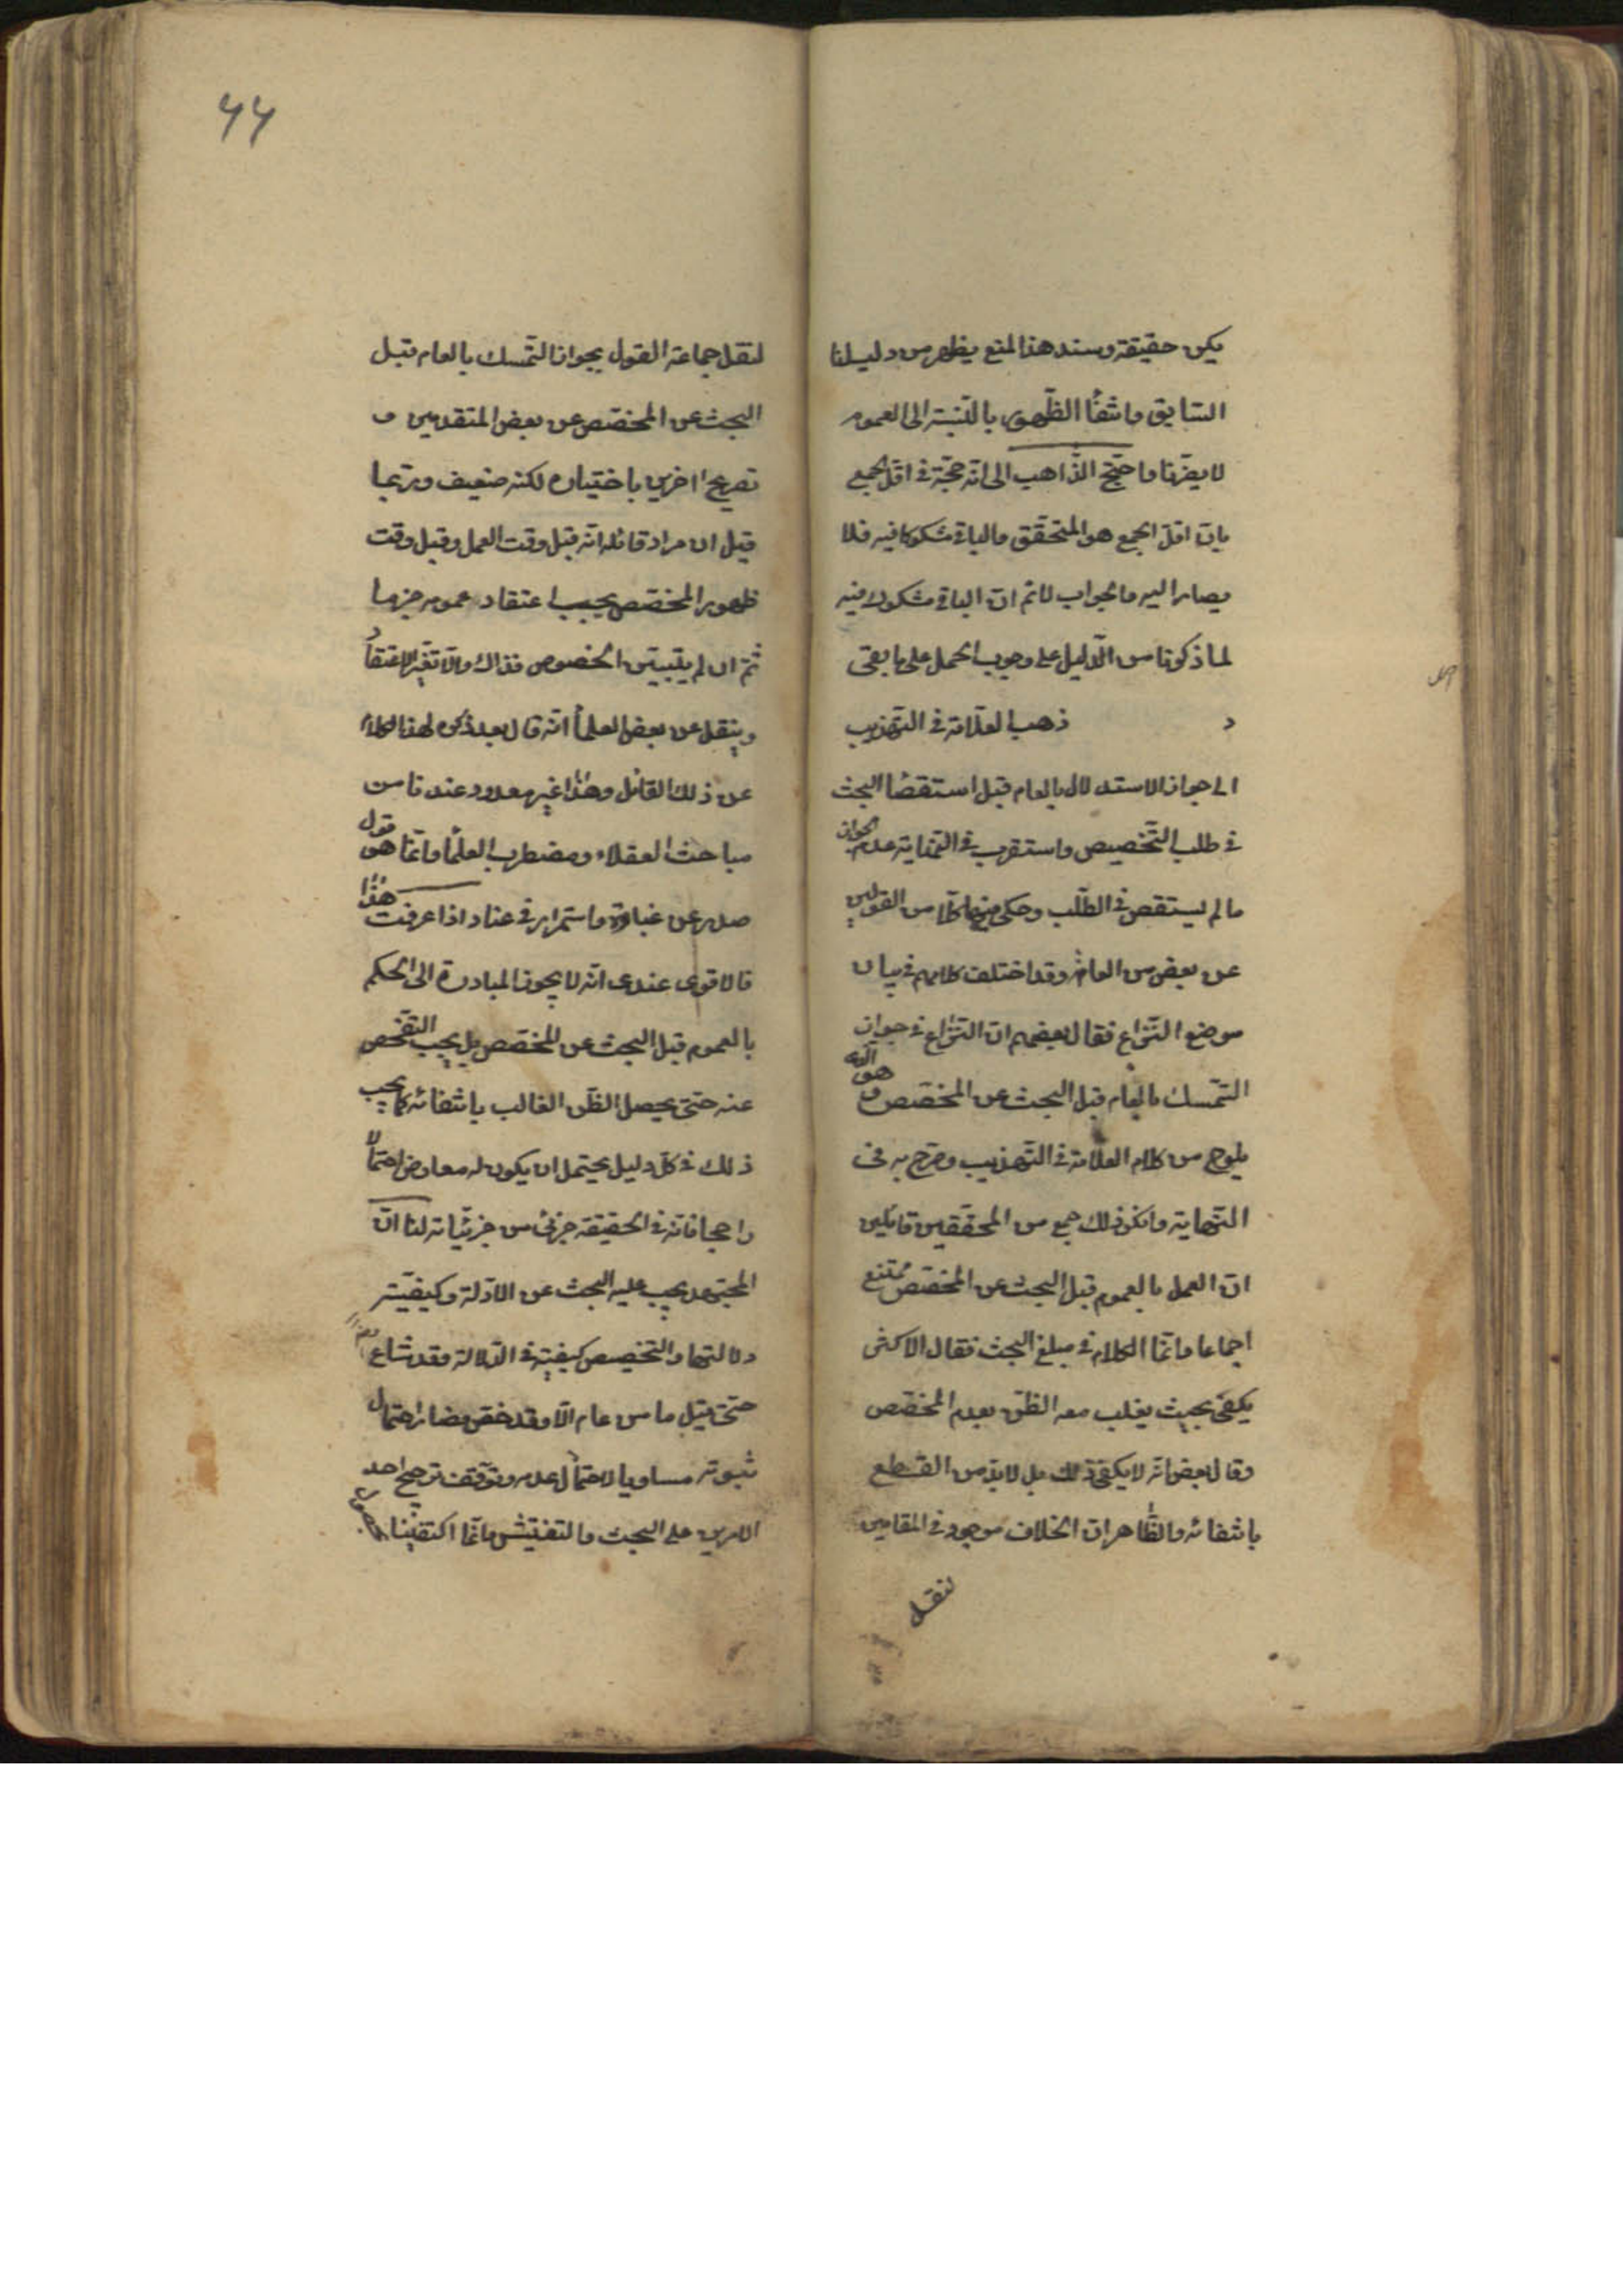 يكن حقيقة وسند هذا المنع يظهر من دليلنا
السابق وانتفاء الظهور بالنسبة الى العموم
لا يضرنا واحتج الذاهب الى انه حجة في اقل الجمع
بان اقل الجمع هو المتحقق والباقي مشكوك فيه فلا
يصار اليه والجواب لا نم ان الباقي مشكوك فيه
لما ذكرنا من الدليل على وجوب الحمل على ما بقى
ذهب العلامة في التهذيب
الى جواز الاستدلال بالعام قبل استقصاء البحث
في طلب التخصيص واستقرب في النهاية عدم الجواز
ما لم يستقص في الطلب وحكى فيها كلا من القولين
عن بعض من العامة وقد اختلف كلامهم في بيان
موضع النزاع فقال بعضهم ان النزاع في جواز
التمسك بالعام قبل البحث عن المخصص وهو الذي
يلوح من كلام العلامة في التهذيب وصرح به في
النهاية وانكر ذلك جمع من المحققين قايلين
ان العمل بالعموم قبل البحث عن المخصص ممتنع
اجماعا وانما الكلام في مبلغ البحث فقال الاكثر
يكفي بحيث يغلب معه الظن بعدم المخصص
وقال بعض انه لا يكفي ذلك بل لا بد من القطع
بانتفائه والظاهر ان الخلاف موجود في المقامين
لنقل
۶۶
لنقل جماعة القول بجواز التمسك بالعام قبل
البحث عن المخصص عن بعض المتقدمين و
تصريح اخرين باختياره لكنه ضعيف وربما
قيل ان مراد قائله انه قبل وقت العمل وقبل وقت
ظهور المخصص يجب اعتقاد عمومه جزما
ثم ان لم يتبين الخصوص فذاك والا تغير الاعتقاد
وينقل عن بعض العلماء انه قال بعد ذكره لهذا الكلام
عن ذلك القائل وهذا غير معدود عندنا من
مباحث العقلاء ومضطرب العلماء وانما هو قول
صدر عن غباوة واستمرار في عناد اذا عرفت هذا
فالاقوى عندي انه لا يجوز المبادرة الى الحكم
بالعموم قبل البحث عن المخصص بل يجب التفحص
عنه حتى يحصل الظن الغالب بانتفائه كما يجب
ذلك في كل دليل يحتمل ان يكون له معارض احتمالا
راجحا فانه في الحقيقة جزئي من جزئياته لنا ان
المجتهد يجب عليه البحث عن الادلة وكيفية
دلالتها والتخصيص كيفية في الدلالة وقد شاع
حتى قيل ما من عام الا وقد خص فصار احتمال
ثبوته مساويا لاحتمال عدمه وتوقف ترجيح احد
الامرين على البحث والتفتيش وانما اكتفينا